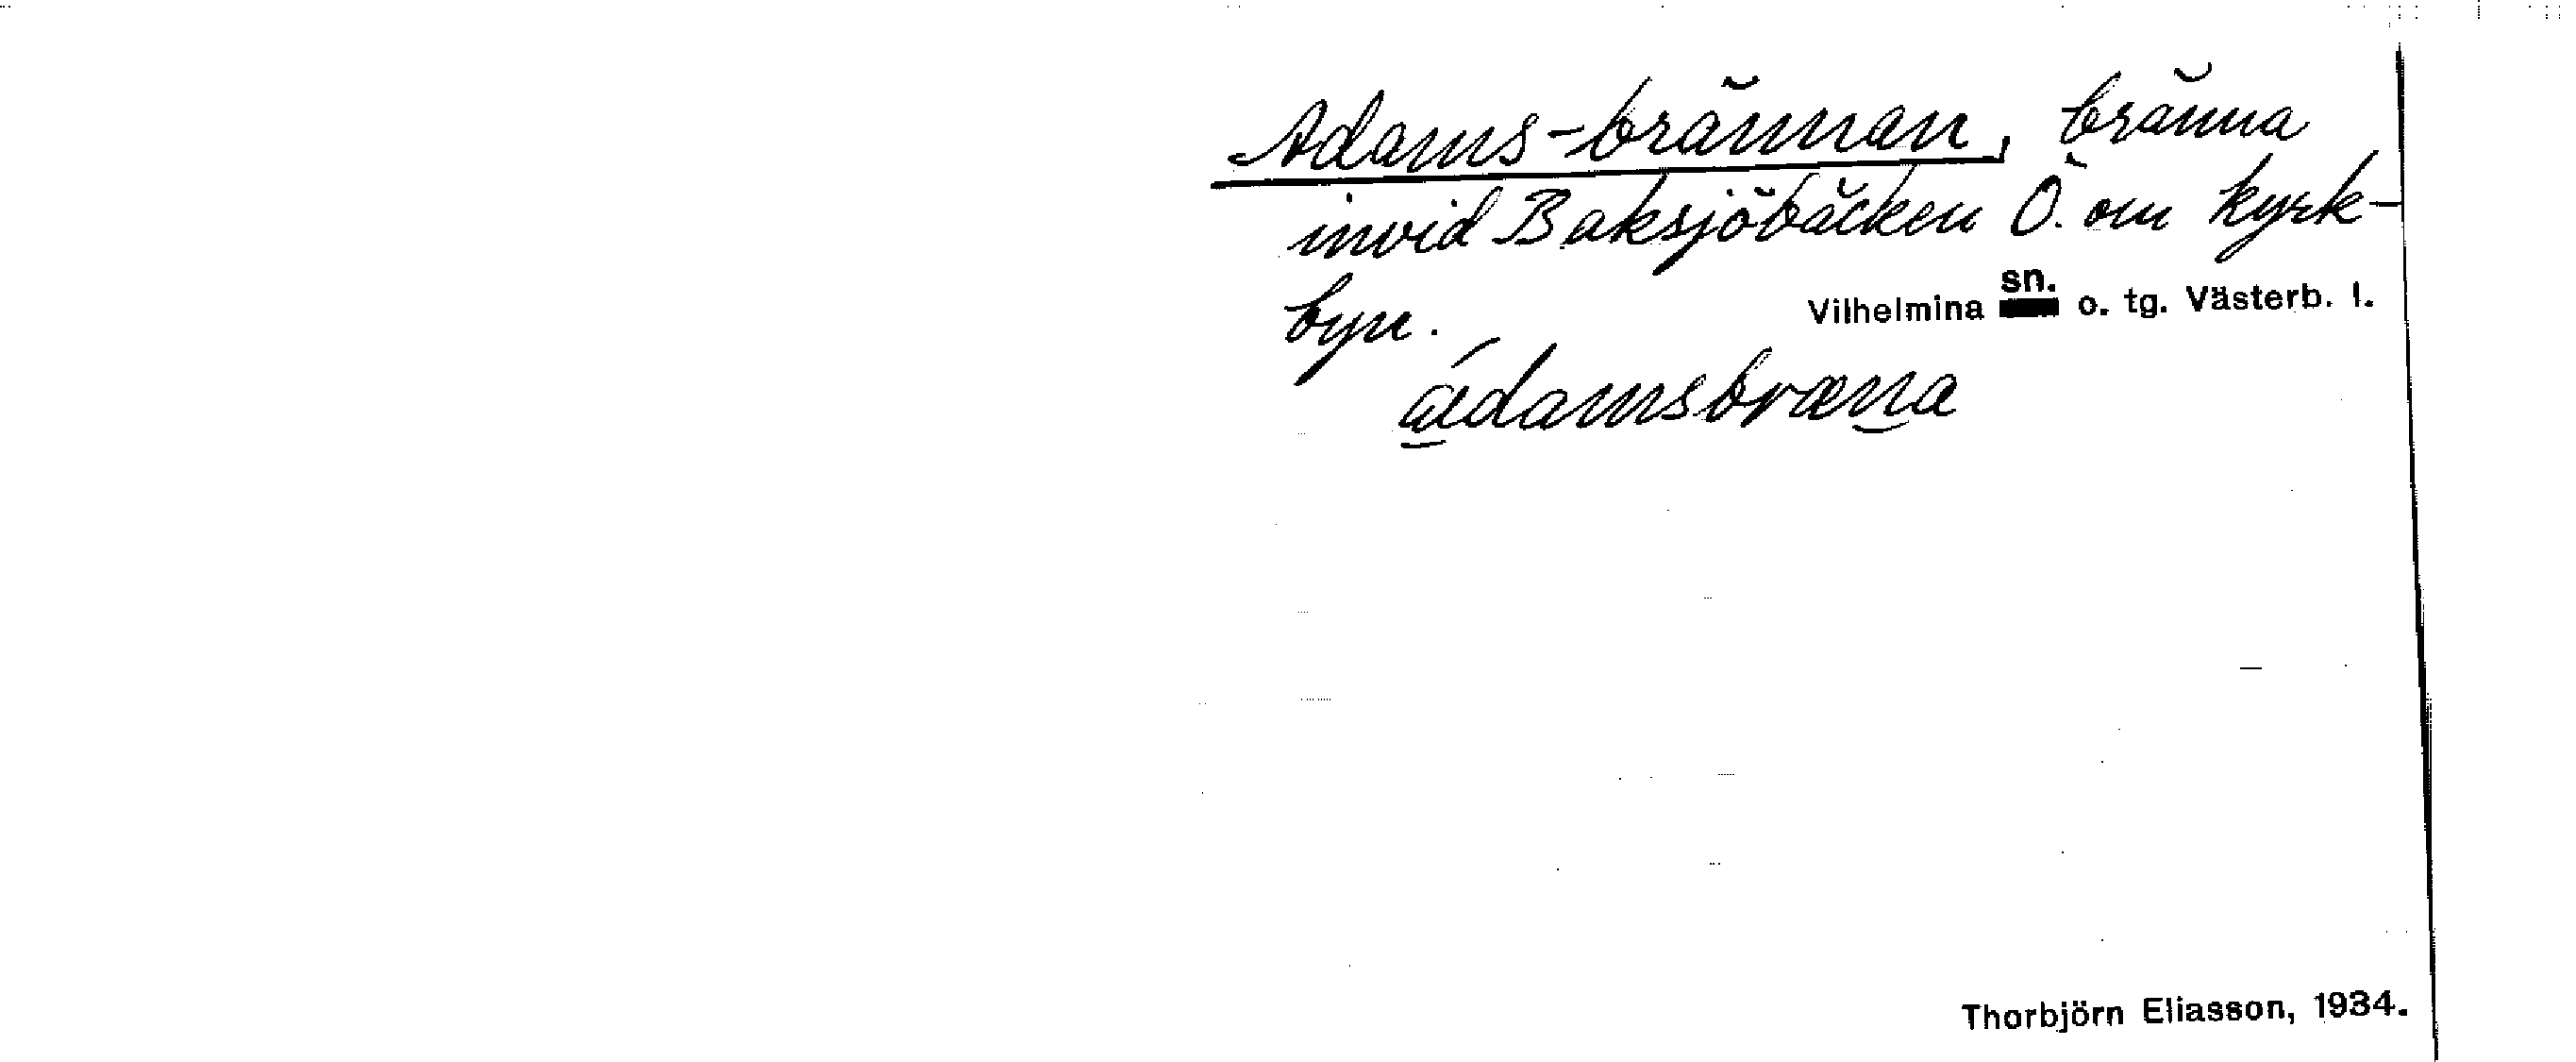 Adams-brännan, bränna
invid Baksjöbäcken Ö. om kyrk-
byn.
Vilhelmina sn. o. tg. Västerb. l.
Thorbjörn Eliasson, 1934.